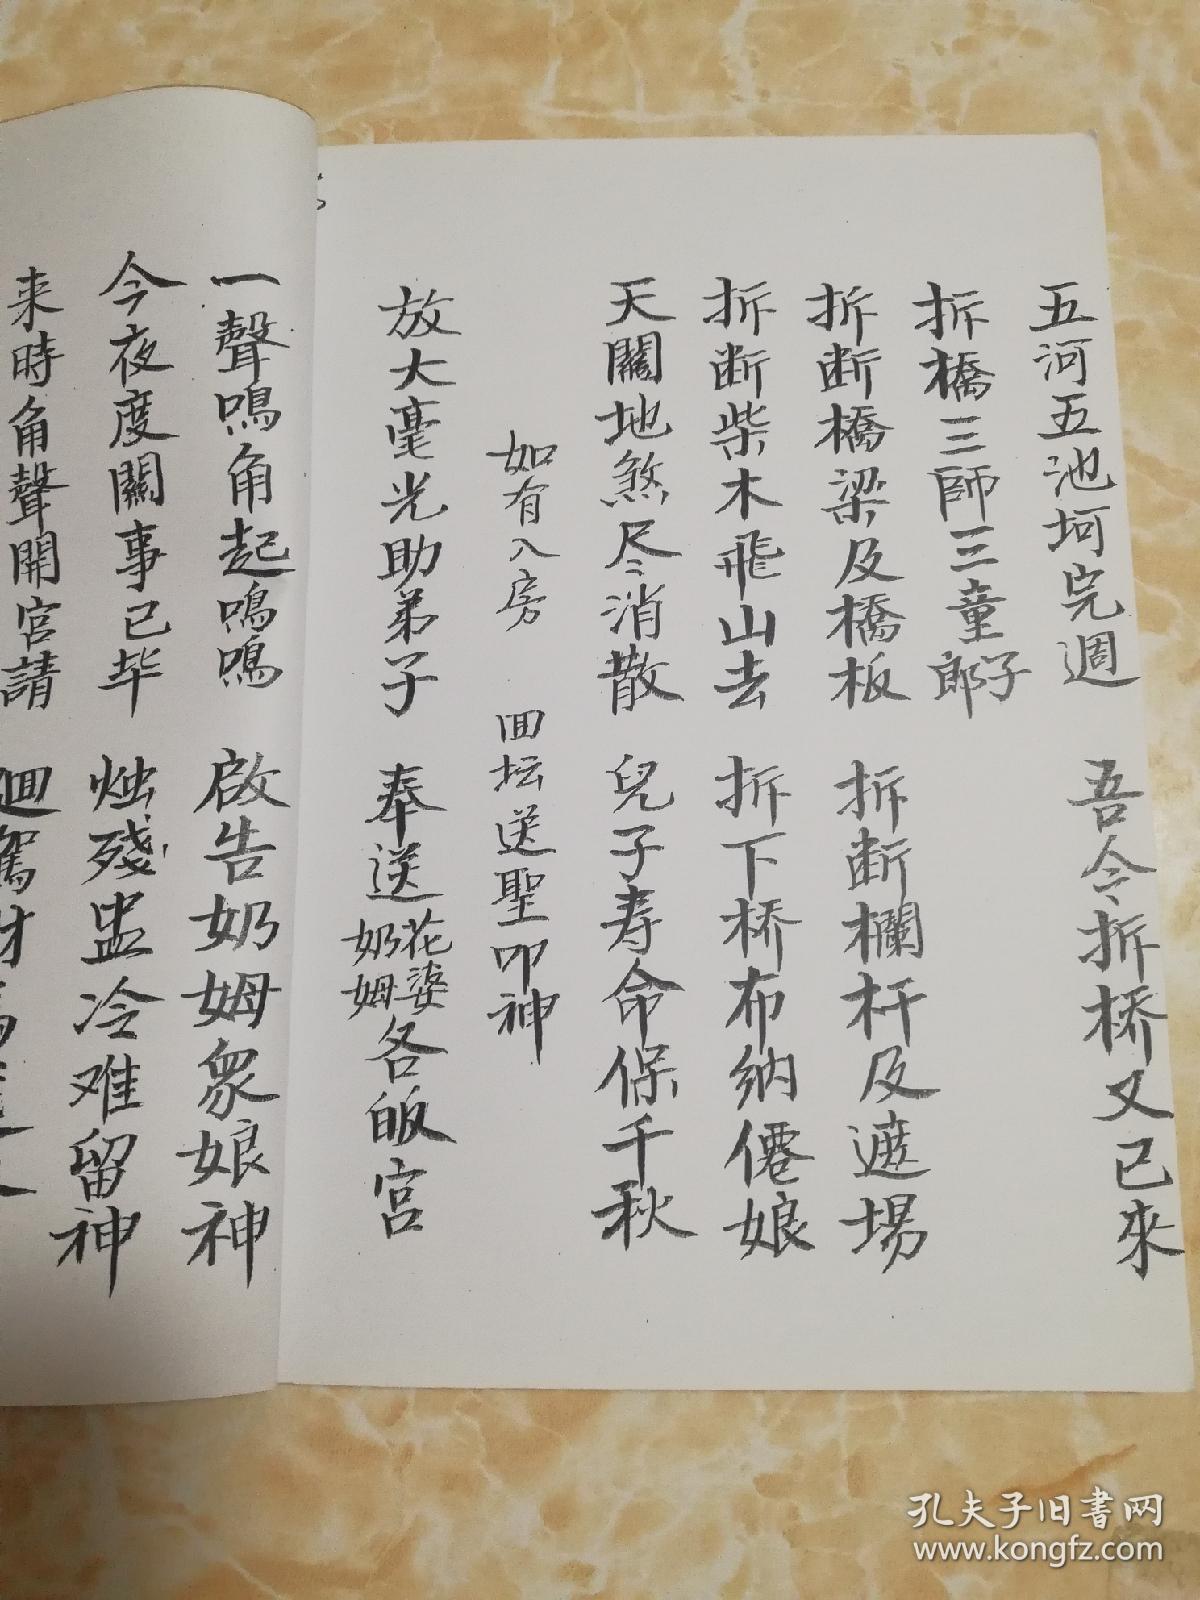 五河五池坷完週 吾令折桥又已來
折橋三師三童郎子
折断橋梁及橋板 折断欄杆及遮場
折断柴木飛山去 折下桥布纳僊娘
天關地煞尽消散 兒子寿命保千秋
如有入房 回坛送聖叩神
放大毫光助弟子 奉送花婆奶姆各皈宫
一聲鳴角起鳴鳴 啟告奶姆衆娘神
今夜度關事已毕 烛残盅冷难留神
来時角聲開宫請 迴駕
孔夫子旧书网
www.kongfz.com